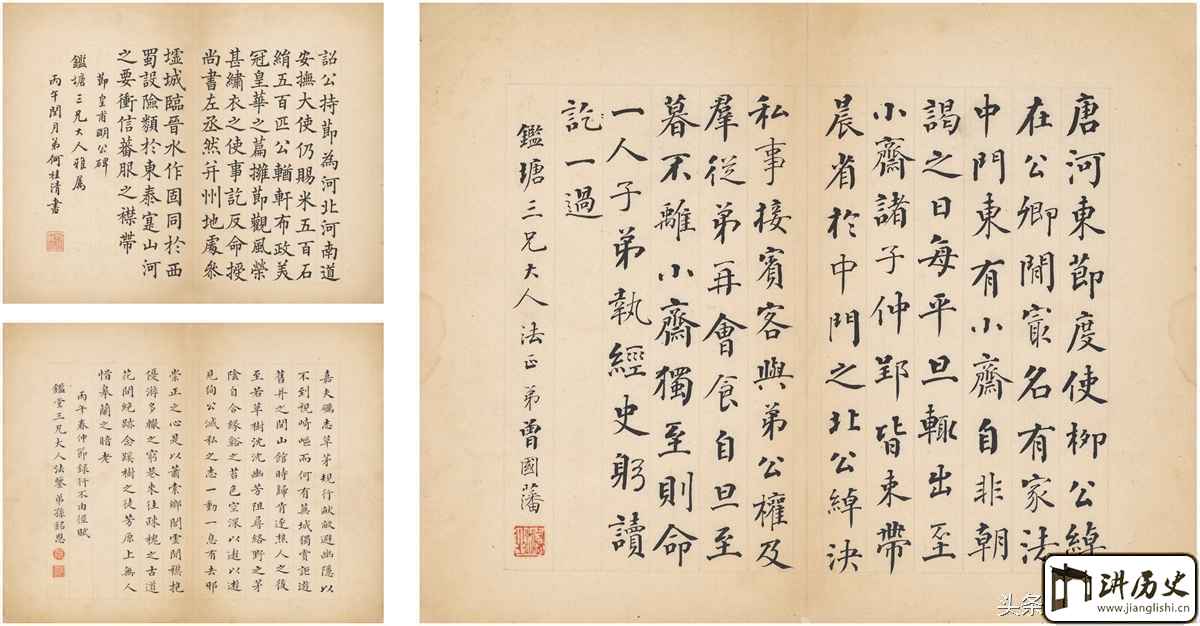 詔公持節為河北河南道
安撫大使仍賜米五百石
絹五百匹公輶軒布政美
冠皇華之篇擁節觀風榮
甚繡衣之使事訖反命授
尚書左丞然并州地處叅
墟城臨晉水作固同於西
蜀設險類於東秦寔山河
之要衝信蕃服之襟帶
節皇甫明公碑
鑑塘三兄大人雅属
丙午閏月弟何桂清書
嘉夫礪志草茅規行畎畝避幽隱以
不到視崎嶇而何有莫城獨貴詎遊
舊井之閒山館時歸有逢焦人之後
至若草樹沈沈幽芳阻尋絡野之茅
陰自合緣谿之苔色空深以遨以遊
見徇公滅私之志一動一息有去邪
崇正之心是以蕭索鄉閭雲閒穢抱
優游多轍之窮巷來往疎槐之古道
花閒絕跡念蹊樹之徒芳原上無人
惜皋蘭之暗老
丙午春仲節錄行不由徑賦
鑑堂三兄大人法鑒弟孫銘恩
唐河東節度使柳公綽
在公卿閒㝡名有家法
中門東有小齋自非朝
謁之日每平旦輒出至
小齋諸子仲郢皆束帶
晨省於中門之北公綽決
私事接賓客與弟公權及
羣從弟再會食自旦至
暮不離小齋獨至則命
一人子弟執經史躬讀
訖一過
鑑塘三兄大人 法正 弟曾國藩
头条
讲历史
www.jianglishi.cn